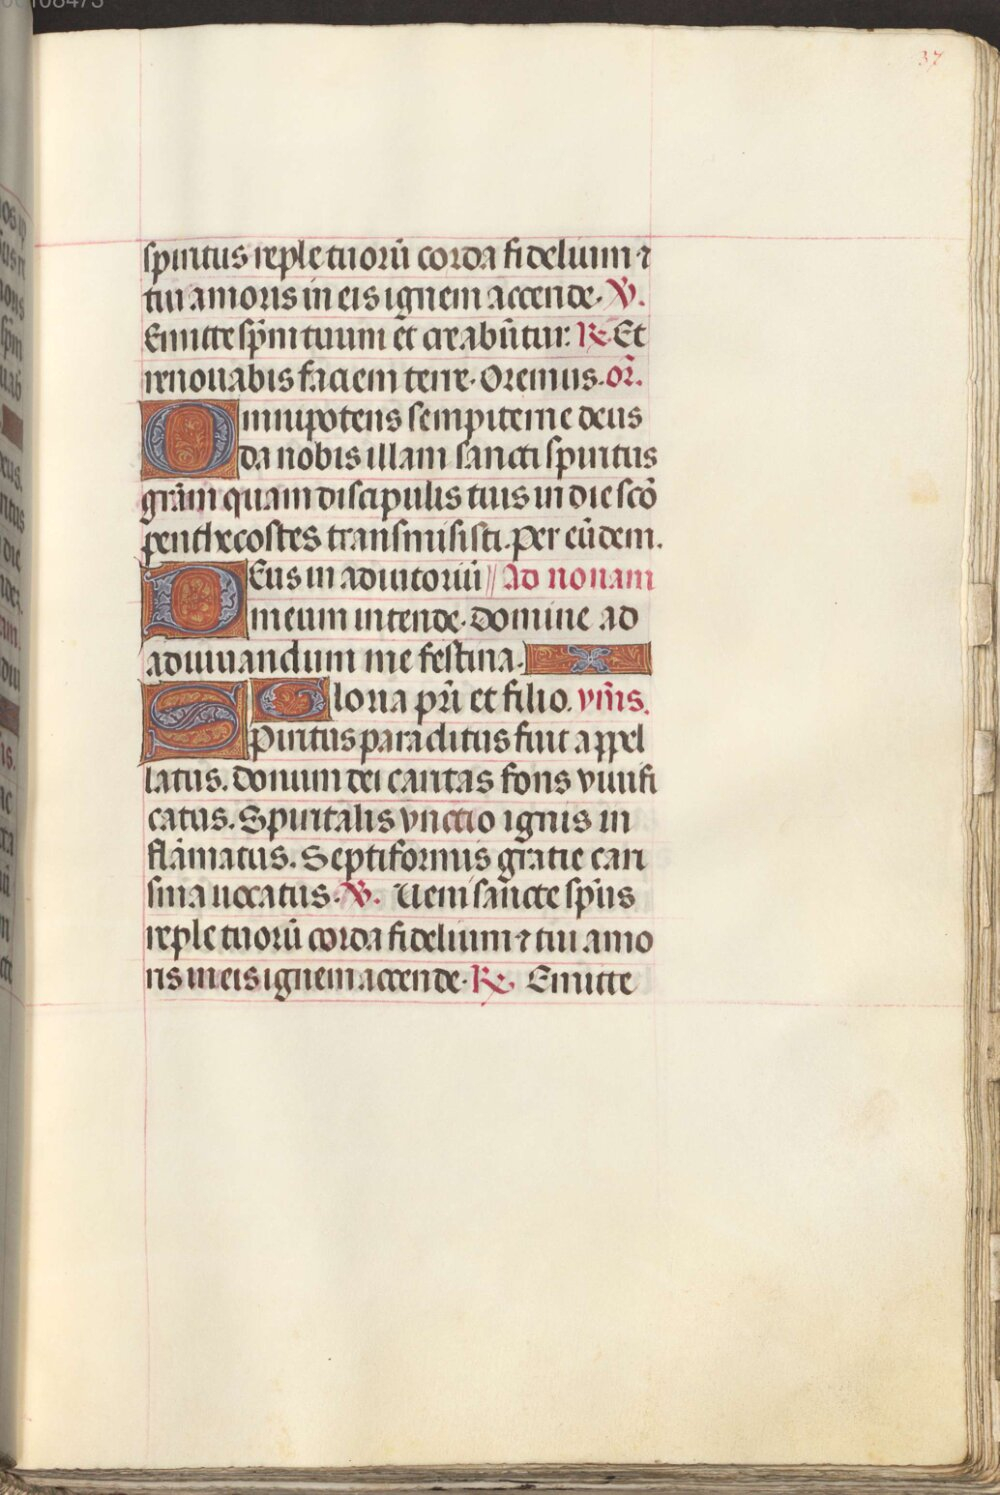 37
spiritus reple tuorū corda fidelium ⁊
tui amoris in eis ignem accende. V̇.
Emitte sp̄m tuum et creabūtur. R̷. Et
renouabis faciem terre. Oremus. or̄.
Omnipotens sempiterne deus
da nobis illam sancti spiritus
gr̄am quam discipulis tuis in die scō
penthecostes transmisisti. Per eūdem.
DEus in adiutoriū // Ad nonam
meum intende. Domine ad
adiuuandum me festina.
Gloria pr̄i et filio. ym̄s.
SPiritus paraclitus fuit appel
latus. Donum dei caritas fons viuifi
catus. Spiritalis vnctio ignis in
flāmatus. Septiformis gratie cari
sma uocatus. V̇. Ueni sancte sp̄us
reple tuorū corda fidelium ⁊ tui amo
ris in eis ignem accende. R̷. Emitte